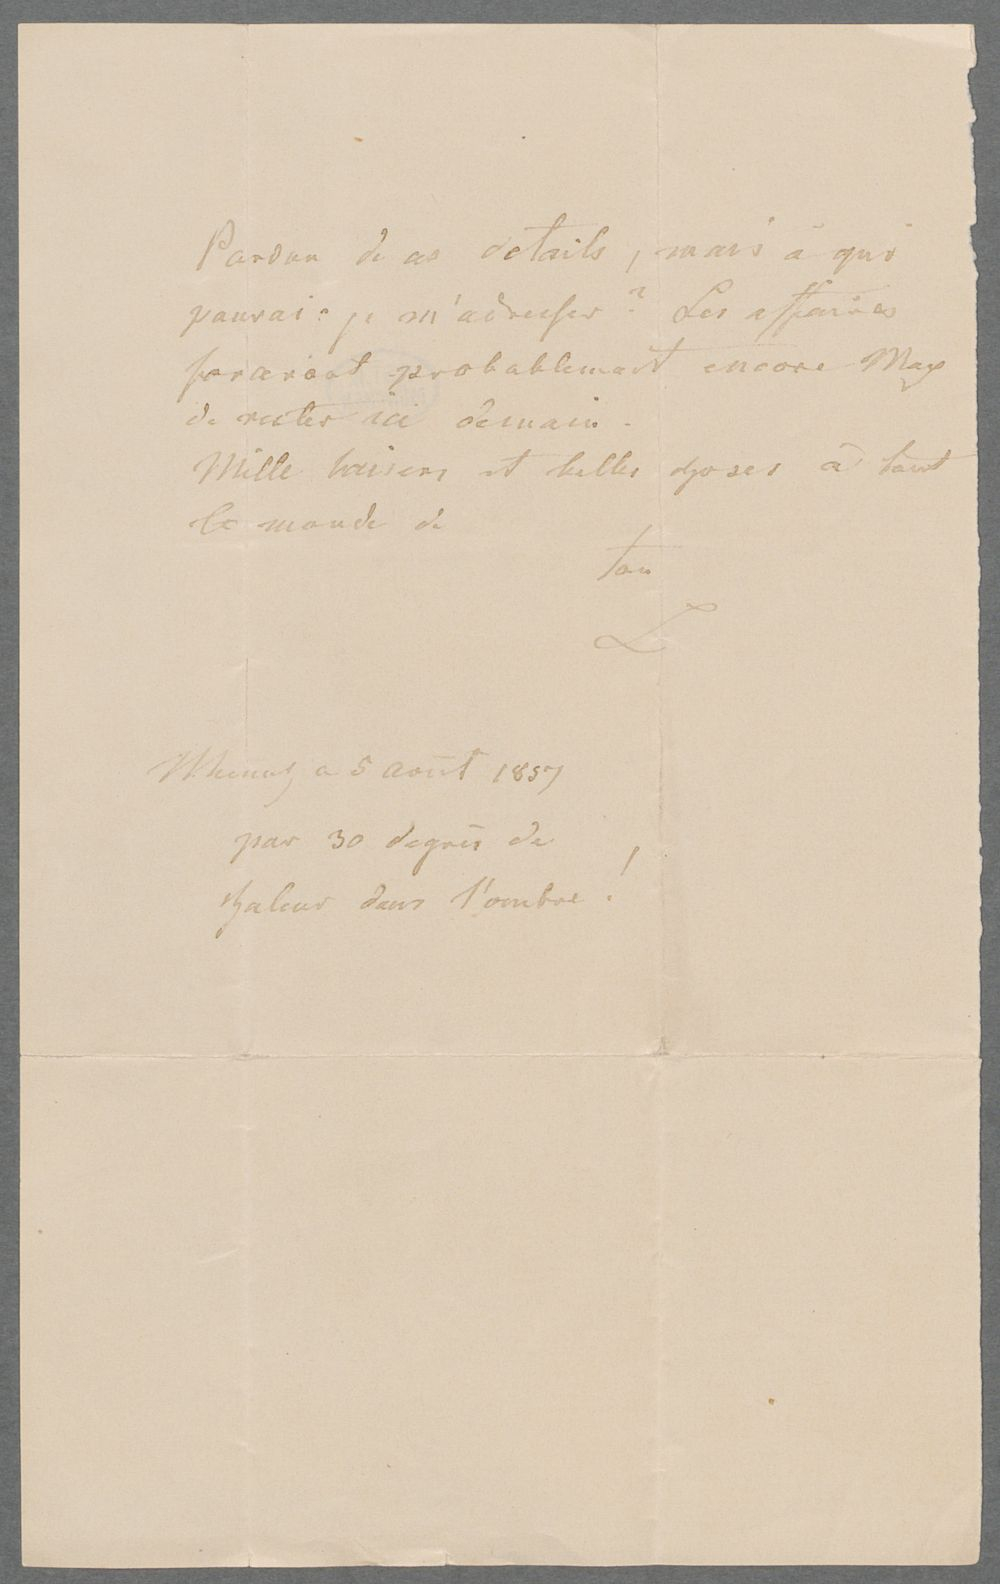 Pardon de ces details, mais à qui
pourai-je m'adresser? Les affaires
forceront probablement encore Max
de rester ici demain.
Mille baisers et belles choses à tout
le monde de
ton
L
a 5 août 1857
par 30 degrés de
chaleur dans l'ombre!